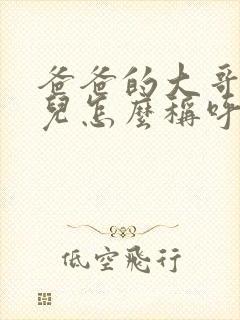 爸爸的大哥
兒怎麼稱呼
低空飛行